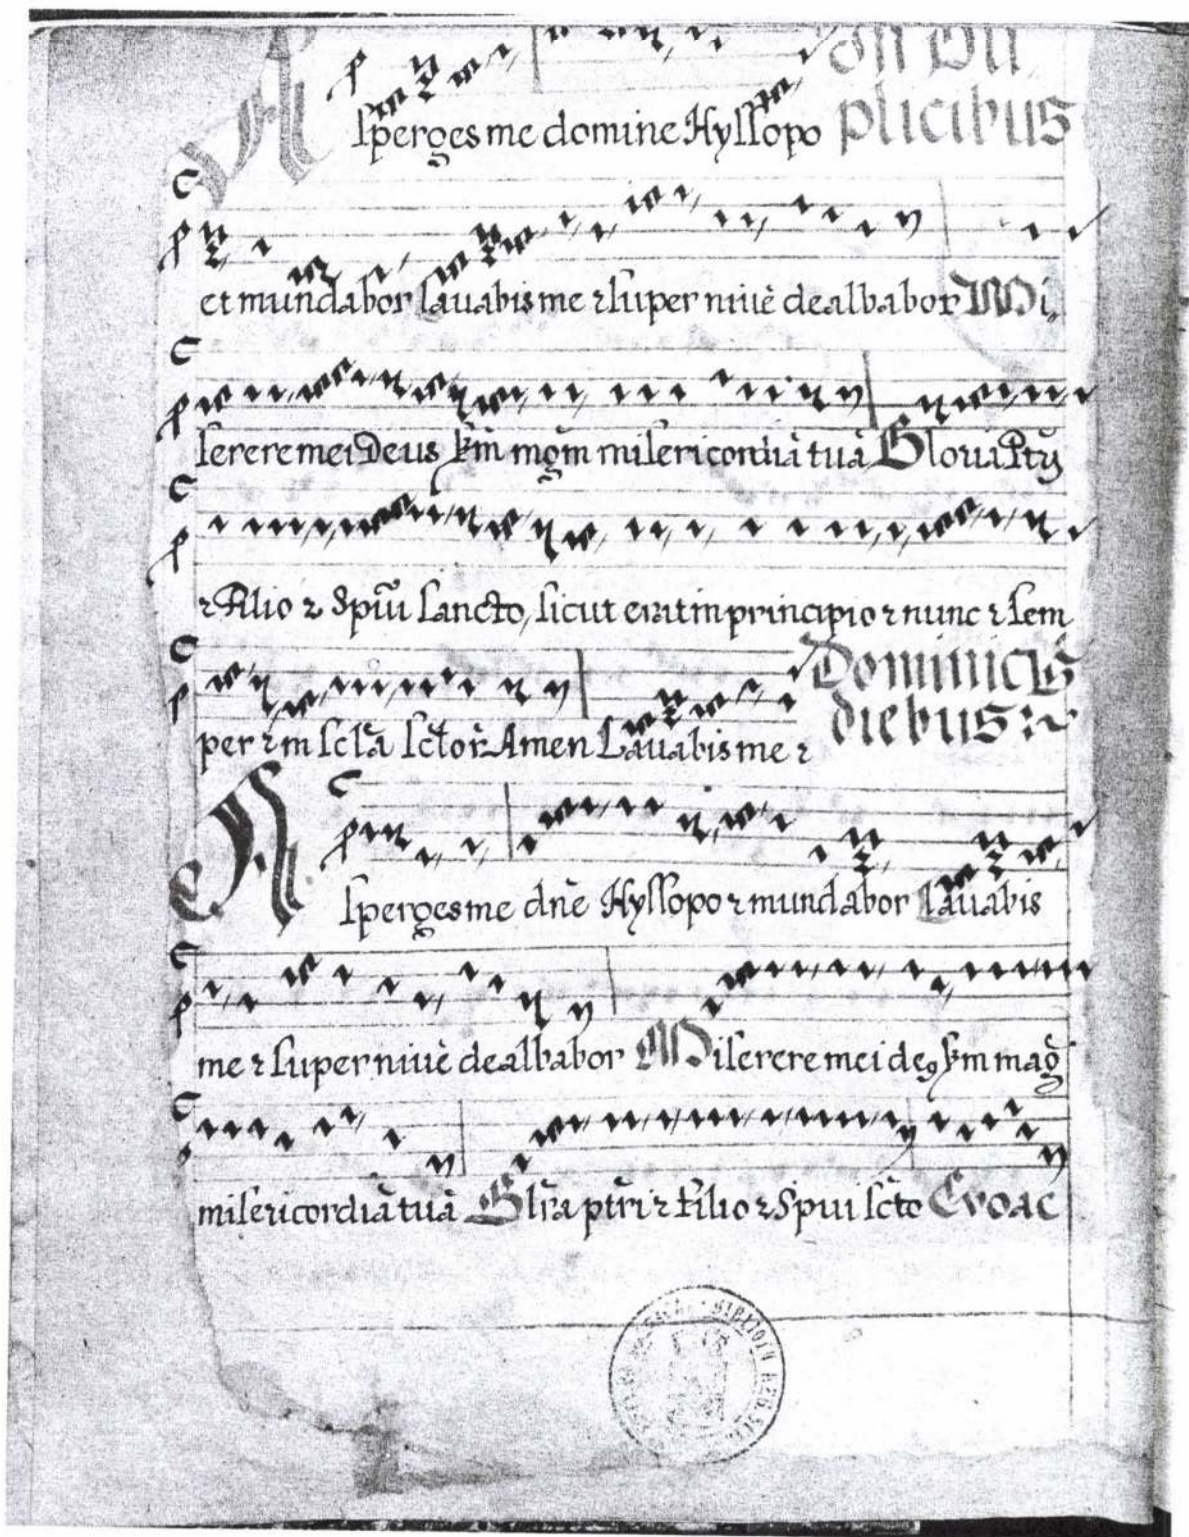 plicibus
Asperges me domine Hyssopo
et mundabor lavabis me ⁊ super nivē dealbabor Mi,,
serere mei Deus s̄m mḡm misericordiā tuā Gloria Pt̄ꝫ
⁊ Filio ⁊ Spūi Sancto, sicut erat in principio ⁊ nunc ⁊ sem
per ⁊ in sc̄l̄a sc̄tor̄ Amen Lavabis me ⁊
Dominicis
diebus
Asperges me dn̄e Hyssopo ⁊ mundabor lavabis
me ⁊ super nivē dealbabor Miserere mei deꝯ s̄m mag̃
misericordiā tuā Glr̄a ptr̄i ⁊ Filio ⁊ Spūi sc̄to Evoae